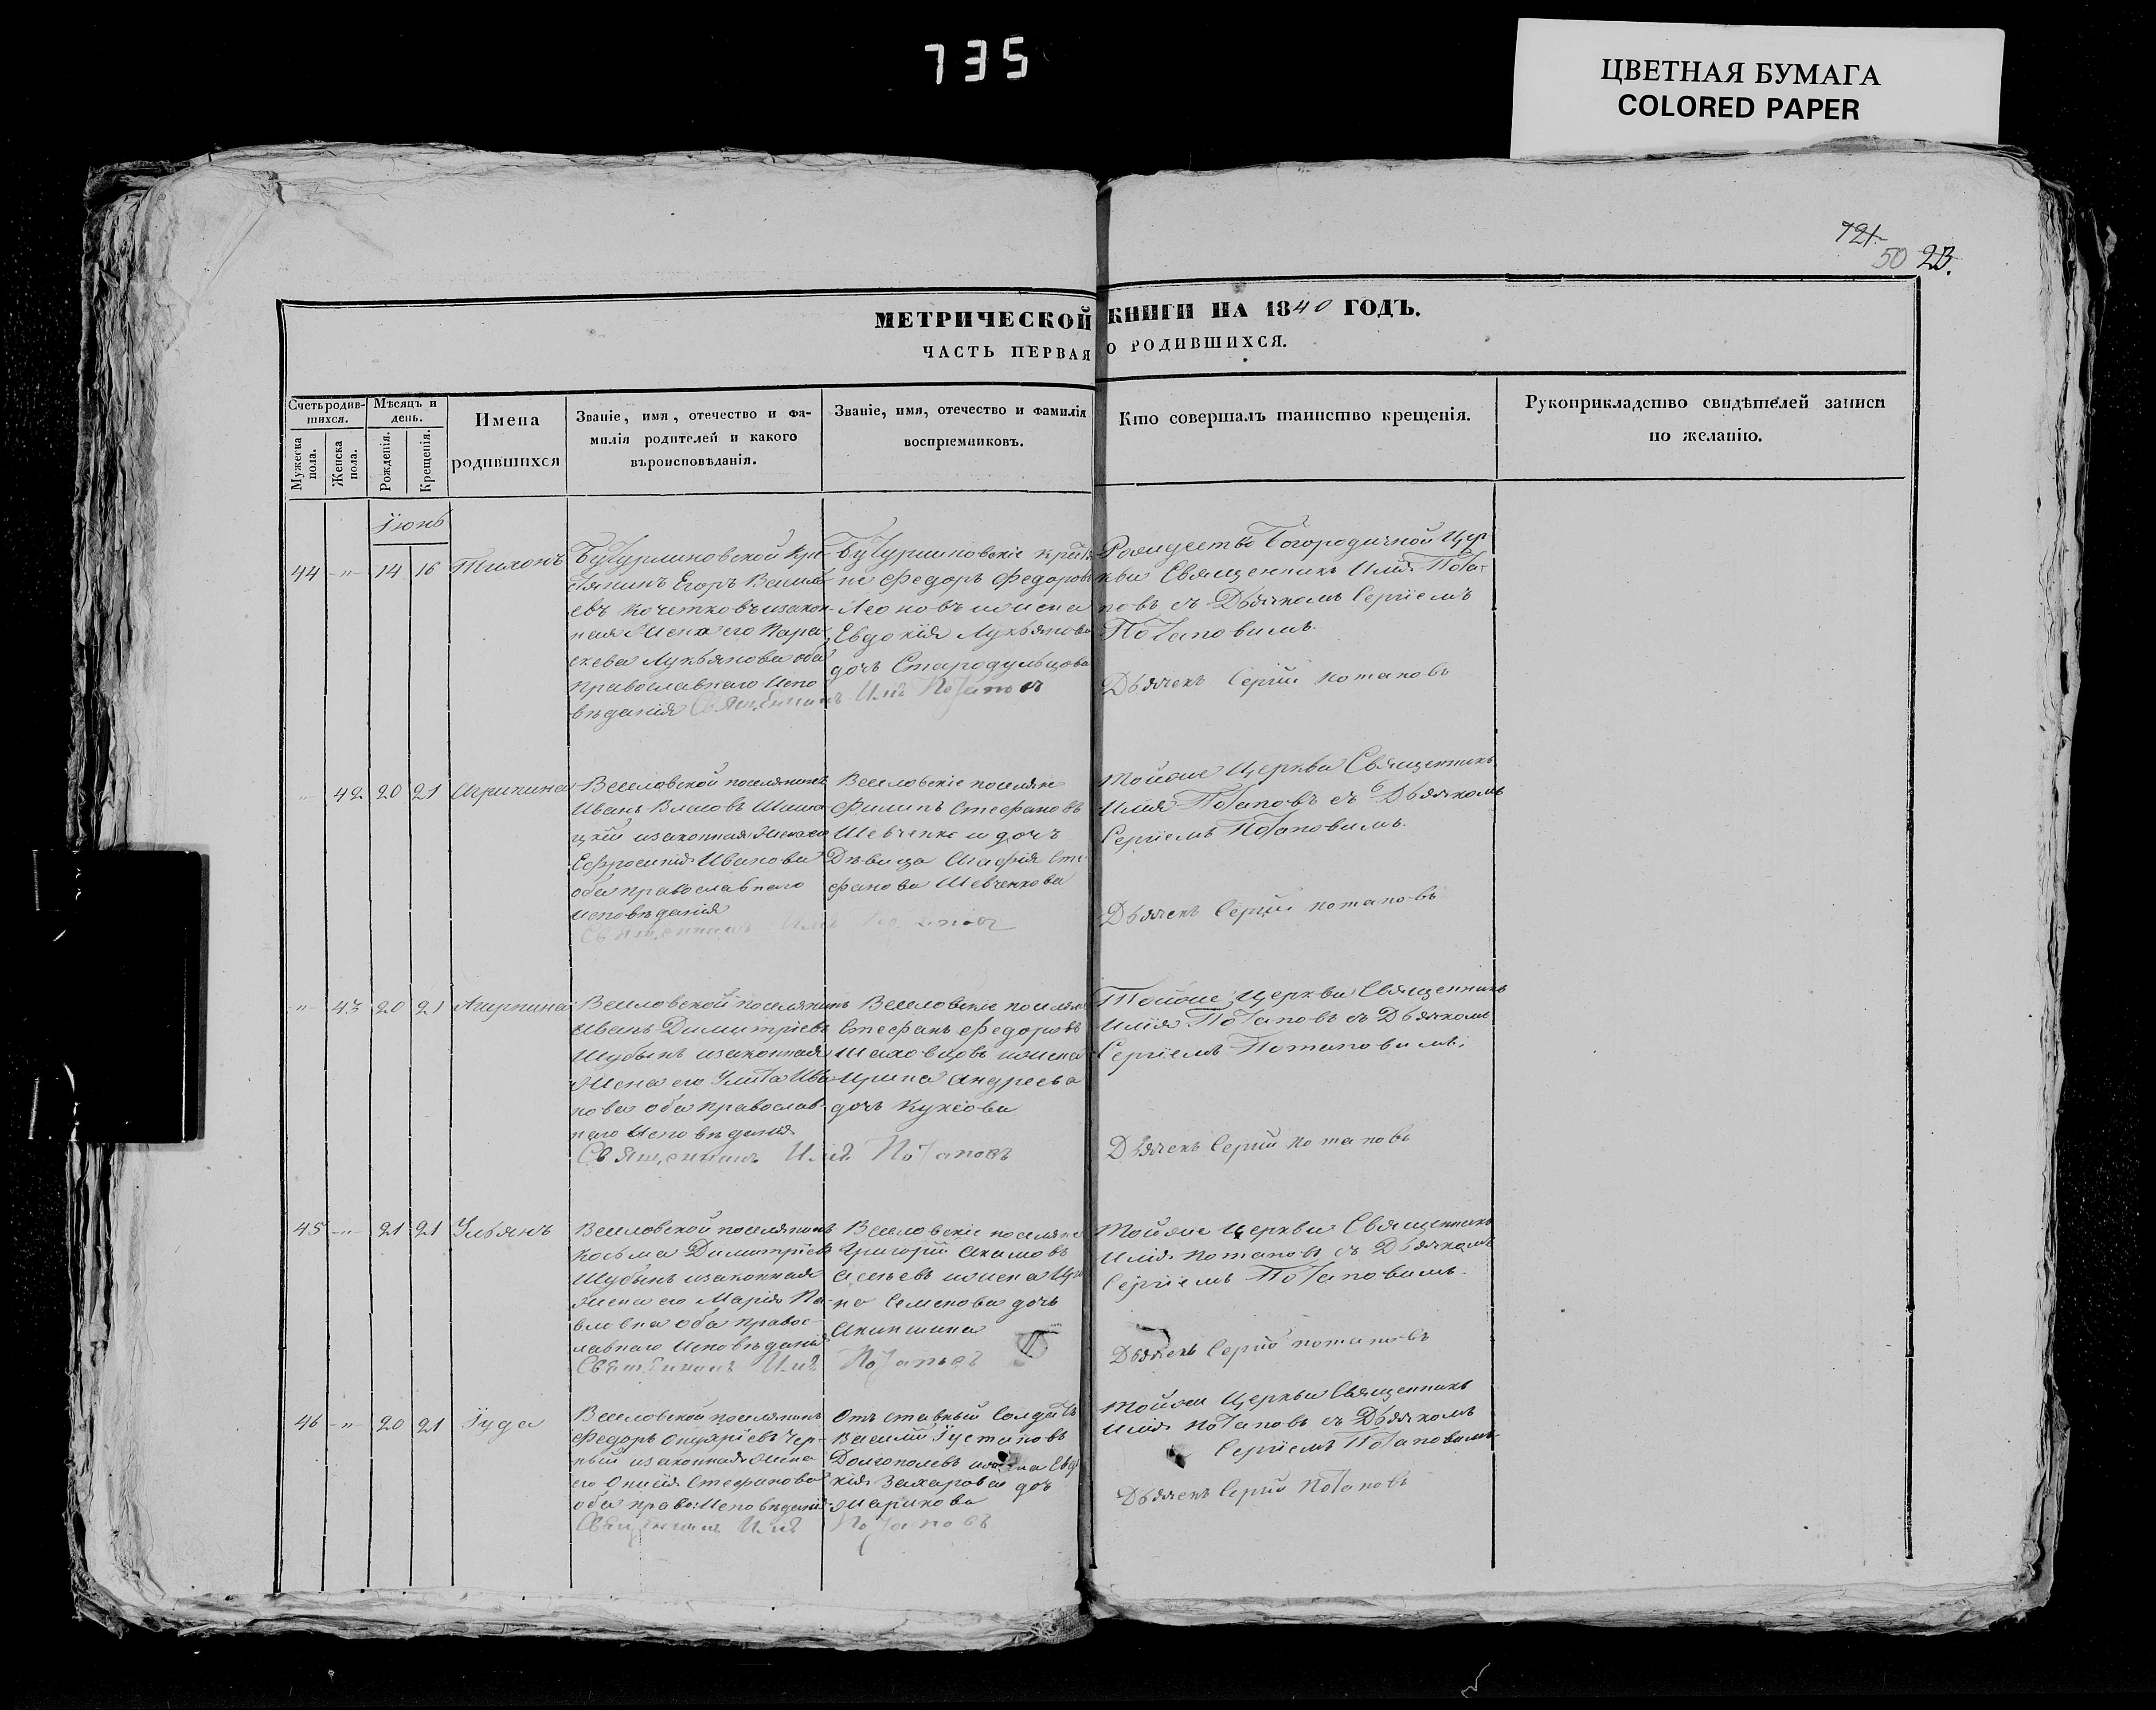 735
ЦВЕТНАЯ БУМАГА
COLORED PAPER
121
50 23.
МЕТРИЧЕСКОЙ КНИГИ НА 1840 ГОДЪ.
ЧАСТЬ ПЕРВАЯ О РОДИВШИХСЯ.
Счетъ родив-
шихся.
Мужеска
пола.
Женска
пола.
Мѣсяцъ и
день.
Рожденія.
Крещенія.
Имена
родившихся
Званіе, имя, отечество и фа-
милія родителей и какого
вѣроисповѣданія.
Званіе, имя, отечество и фамилія
воспріемниковъ.
Кто совершалъ таинство крещенія.
Рукоприкладство свидѣтелей записи
по желанію.
Іюнь
44 -"- 14 16 Тихонъ
Бутурлиновской кре-
стянинъ Егоръ Васил
евъ Кочетковъ изакон-
ная Жена его Парас
кева Лукьянова оба
Православнаго Испо
вѣданія Священникъ Илія Потаповъ
Бутурлиновскіе
не Федоръ Федоровъ
Леоновъ
Евдокія Лукьянова
дочь
Рождество Богородичной Цер
кви Священникъ Илія Пота-
повъ съ Дьячкомъ Сергіемъ
Потаповимъ.
Дьячекъ Сергій Потаповъ
-"- 42 20 21 Агрипина
Веселовской поселянинъ
Иванъ Власовъ
изаконная Жена его
Ефросинія Иванова
оба православнаго
исповѣданія
Священникъ Илія Потаповъ
Веселовскіе поселяне
Филипъ Стефановъ
Шевченко и дочь
Дѣвица Сте-
фанова Шевченкова
Тойже Церкви Священникъ
Илія Потаповъ съ Дьячкомъ
Сергіемъ Потаповимъ.
Дьячекъ Сергій Потаповъ
-"- 43 20 21 Агирпина
Веселовской поселянинъ
Иванъ Димитріевъ
Шубынъ изаконная
Жена его Улита Ива
нова оба православ-
наго Исповѣданія
Священникъ Илія Потаповъ
Веселовскіе поселяне
Стефанъ Федоровъ
Шаховцовъ
Ирина Андреева
дочь
Тойже Церкви Священникъ
Илія Потаповъ съ Дьячкомъ
Сергіемъ Потаповимъ.
Дьячекъ Сергій Потаповъ
45 -"- 21 21 Ульянъ
Веселовской поселянинъ
Козьма Димитріевъ
Шубынъ изаконная
Жена его Марія Па-
вловна оба правос-
лавнаго Исповѣданія
Священникъ Илія Потаповъ
Веселовскіе поселяне
Григорій Акимовъ
на Семенова дочь
Тойже Церкви Священникъ
Илія Потаповъ съ Дьячкомъ
Сергіемъ Потаповимъ.
Дьячекъ Сергій Потаповъ
46 -"- 20 21 Іуда
Веселовской поселянинъ
Федоръ Чер-
ный изаконная Жена
его Стефанова
оба право: Исповѣданія
Священникъ Илія Потаповъ
Отъставный Солдатъ
Василій Іустиновъ
Долгополевъ Евдо
кія Захарова доч
Тойже Церкви Священникъ
Илія Потаповъ съ Дьячкомъ
Сергіемъ Потаповимъ
Дьячекъ Сергій Потаповъ